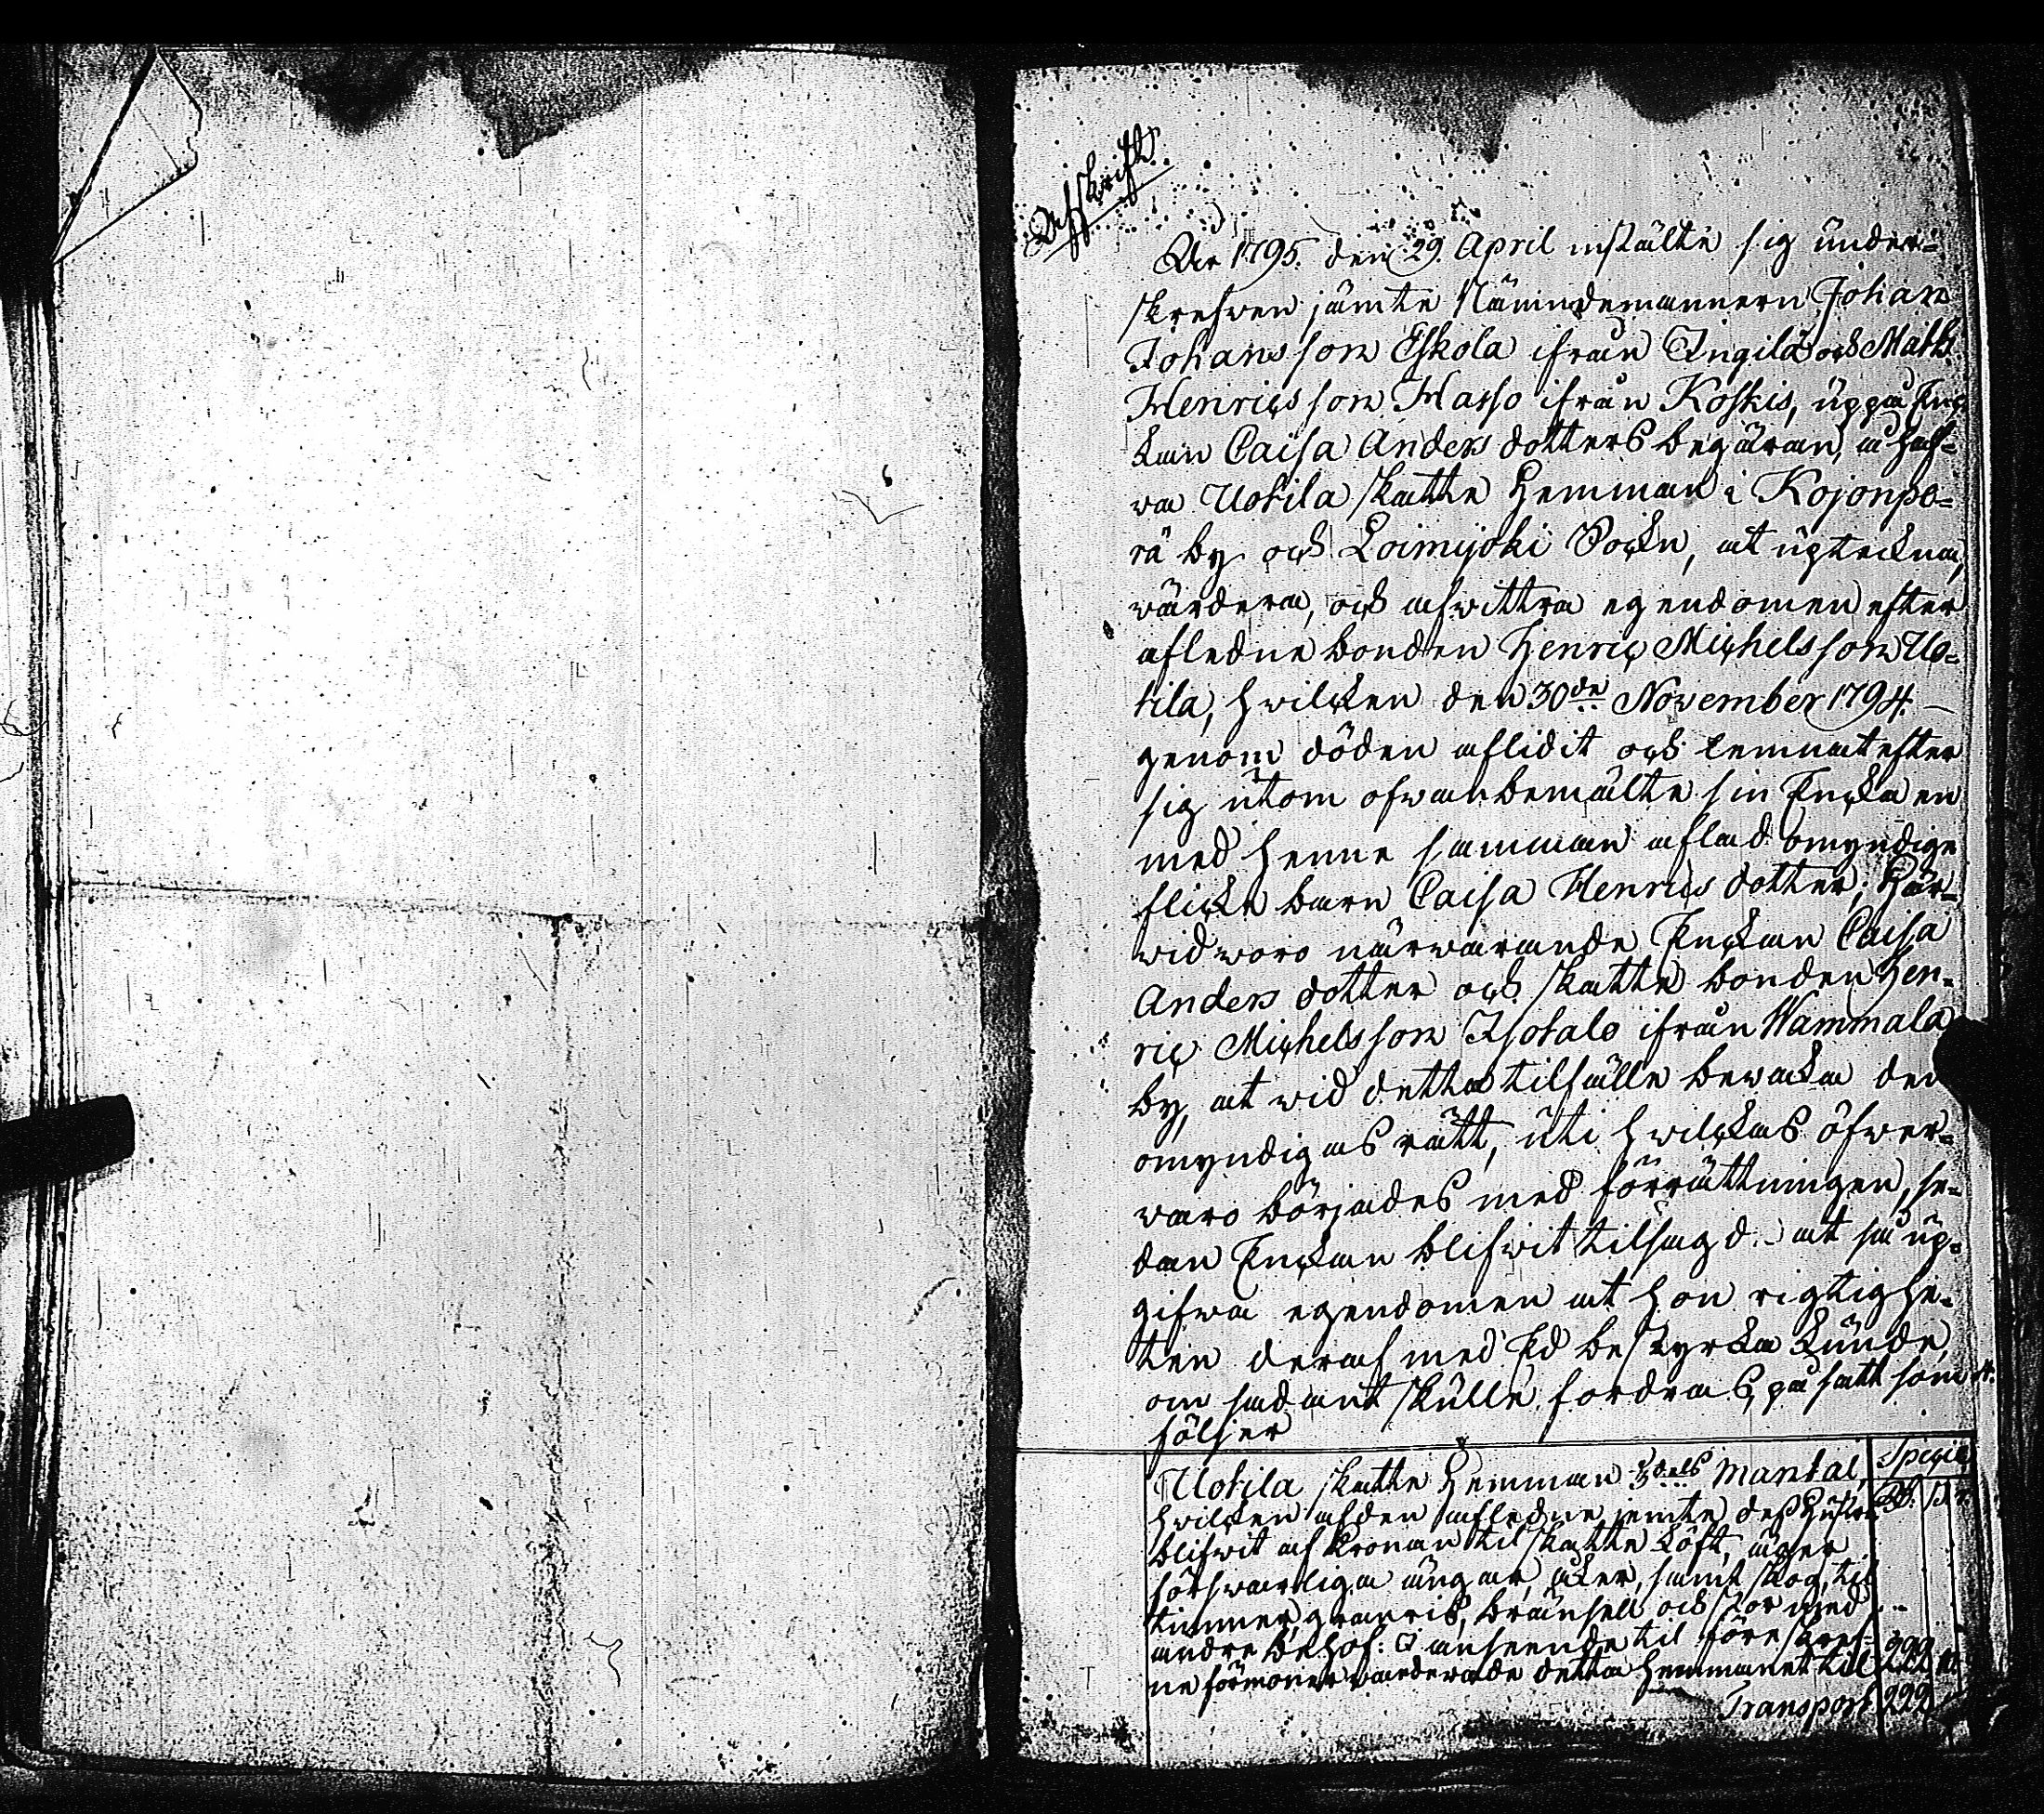 Afskrift
År 1795. den 29. April instälte sig under=
skrefwen jämte Nämndemännern Johan
Johansson Eskola ifrån Ingila och Math:
Henricsson Harso ifrån Koskis, uppå Enc
kan Caisa Anders dotters begäran, å haf=
va Uotila skatte Hemman i Kojonpe=
rä by och Loimijoki Sockn, at upteckna,
wärdera, och afwittra egendomen efter
afledne bonden Henric Michelsson Uo=
tila, hwilcken den 30de November 1794.
genom döden aflidit och lemnat efter
sig utom ofwanbemälte sin Encka en
med henne samman aflad omyndige
flicke barn Caisa Henrics dotter; Här=
wid woro närwarande Enckan Caisa
Anders dotter och skatte bonden Hen=
ric Michelsson Isotalo ifrån Wammala
by, at wid detta tilfälle bewaka den
omyndigas rätt, uti hwilckas öfwer=
waro börjades med förrättningen, se=
dan Enckan blifwit tilsagd at så up=
gifwa egendomen at hon rigtighe=
ten deraf med Ed bestyrka kunde,
om sådant skulle fordras, på sätt som
följer
Uotila skatte Hemman dels mantal, Specie
hwilcken af den afledne jemte des hustru Rd. s. r.
blifwit af Kronan til skatte köft, äger
förswarliga ängar, åker, samt skog, til
timmer, granris, bränsell och stor med
andre behof: I anseende til föreskref=
ne förmoner warderade detta hemmanet til 222
Transport 222